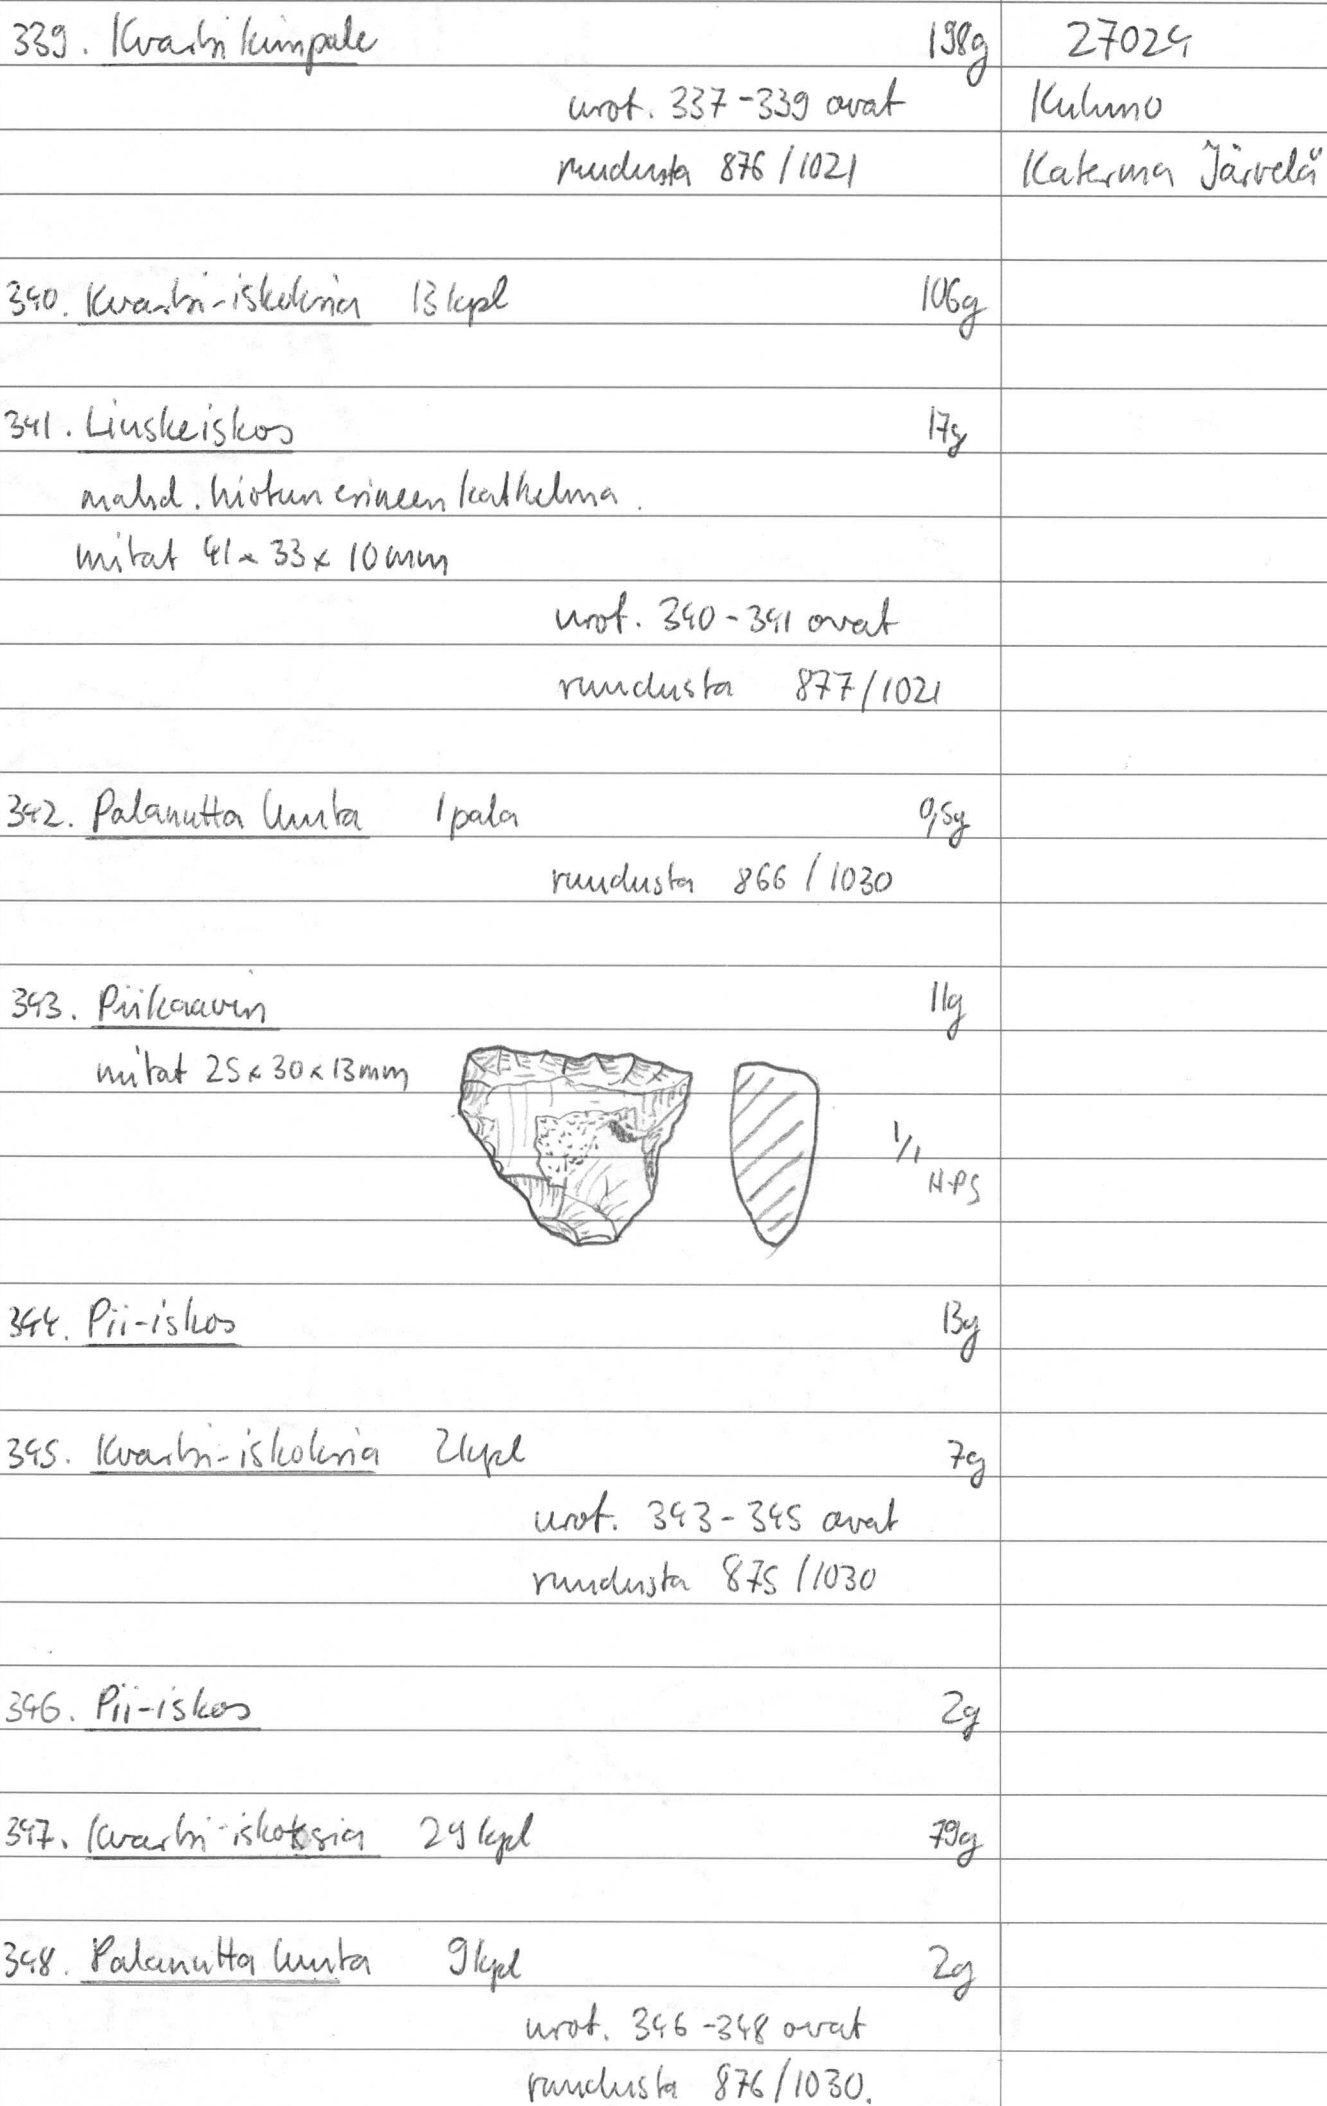 339. Kvartsikimpale 198g 27024
nrot. 337-339 ovat Kuhmo
ruudusta 876/1021 Katerma Järvelä
340. Kvartsi-iskoksia 13 kpl 106g
341. Liuskeiskos 17g
mahd. hiotun esineen katkelma.
mitat 41x33x10mm
nrot. 340-341 ovat
ruudusta 877/1021
342. Palanutta luuta 1 pala 0,5g
ruudusta 866/1030
343. Piikaavin 11g
mitat 25x30x13mm
1/1
H-PS
344. Pii-iskos 13g
345. Kvartsi-iskoksia 2 kpl 7g
nrot. 343-345 ovat
ruudusta 875/1030
346. Pii-iskos 2g
347. Kvartsi-iskoksia 29 kpl 79g
348. Palanutta luuta 9 kpl 2g
nrot. 346-348 ovat
ruudusta 876/1030.